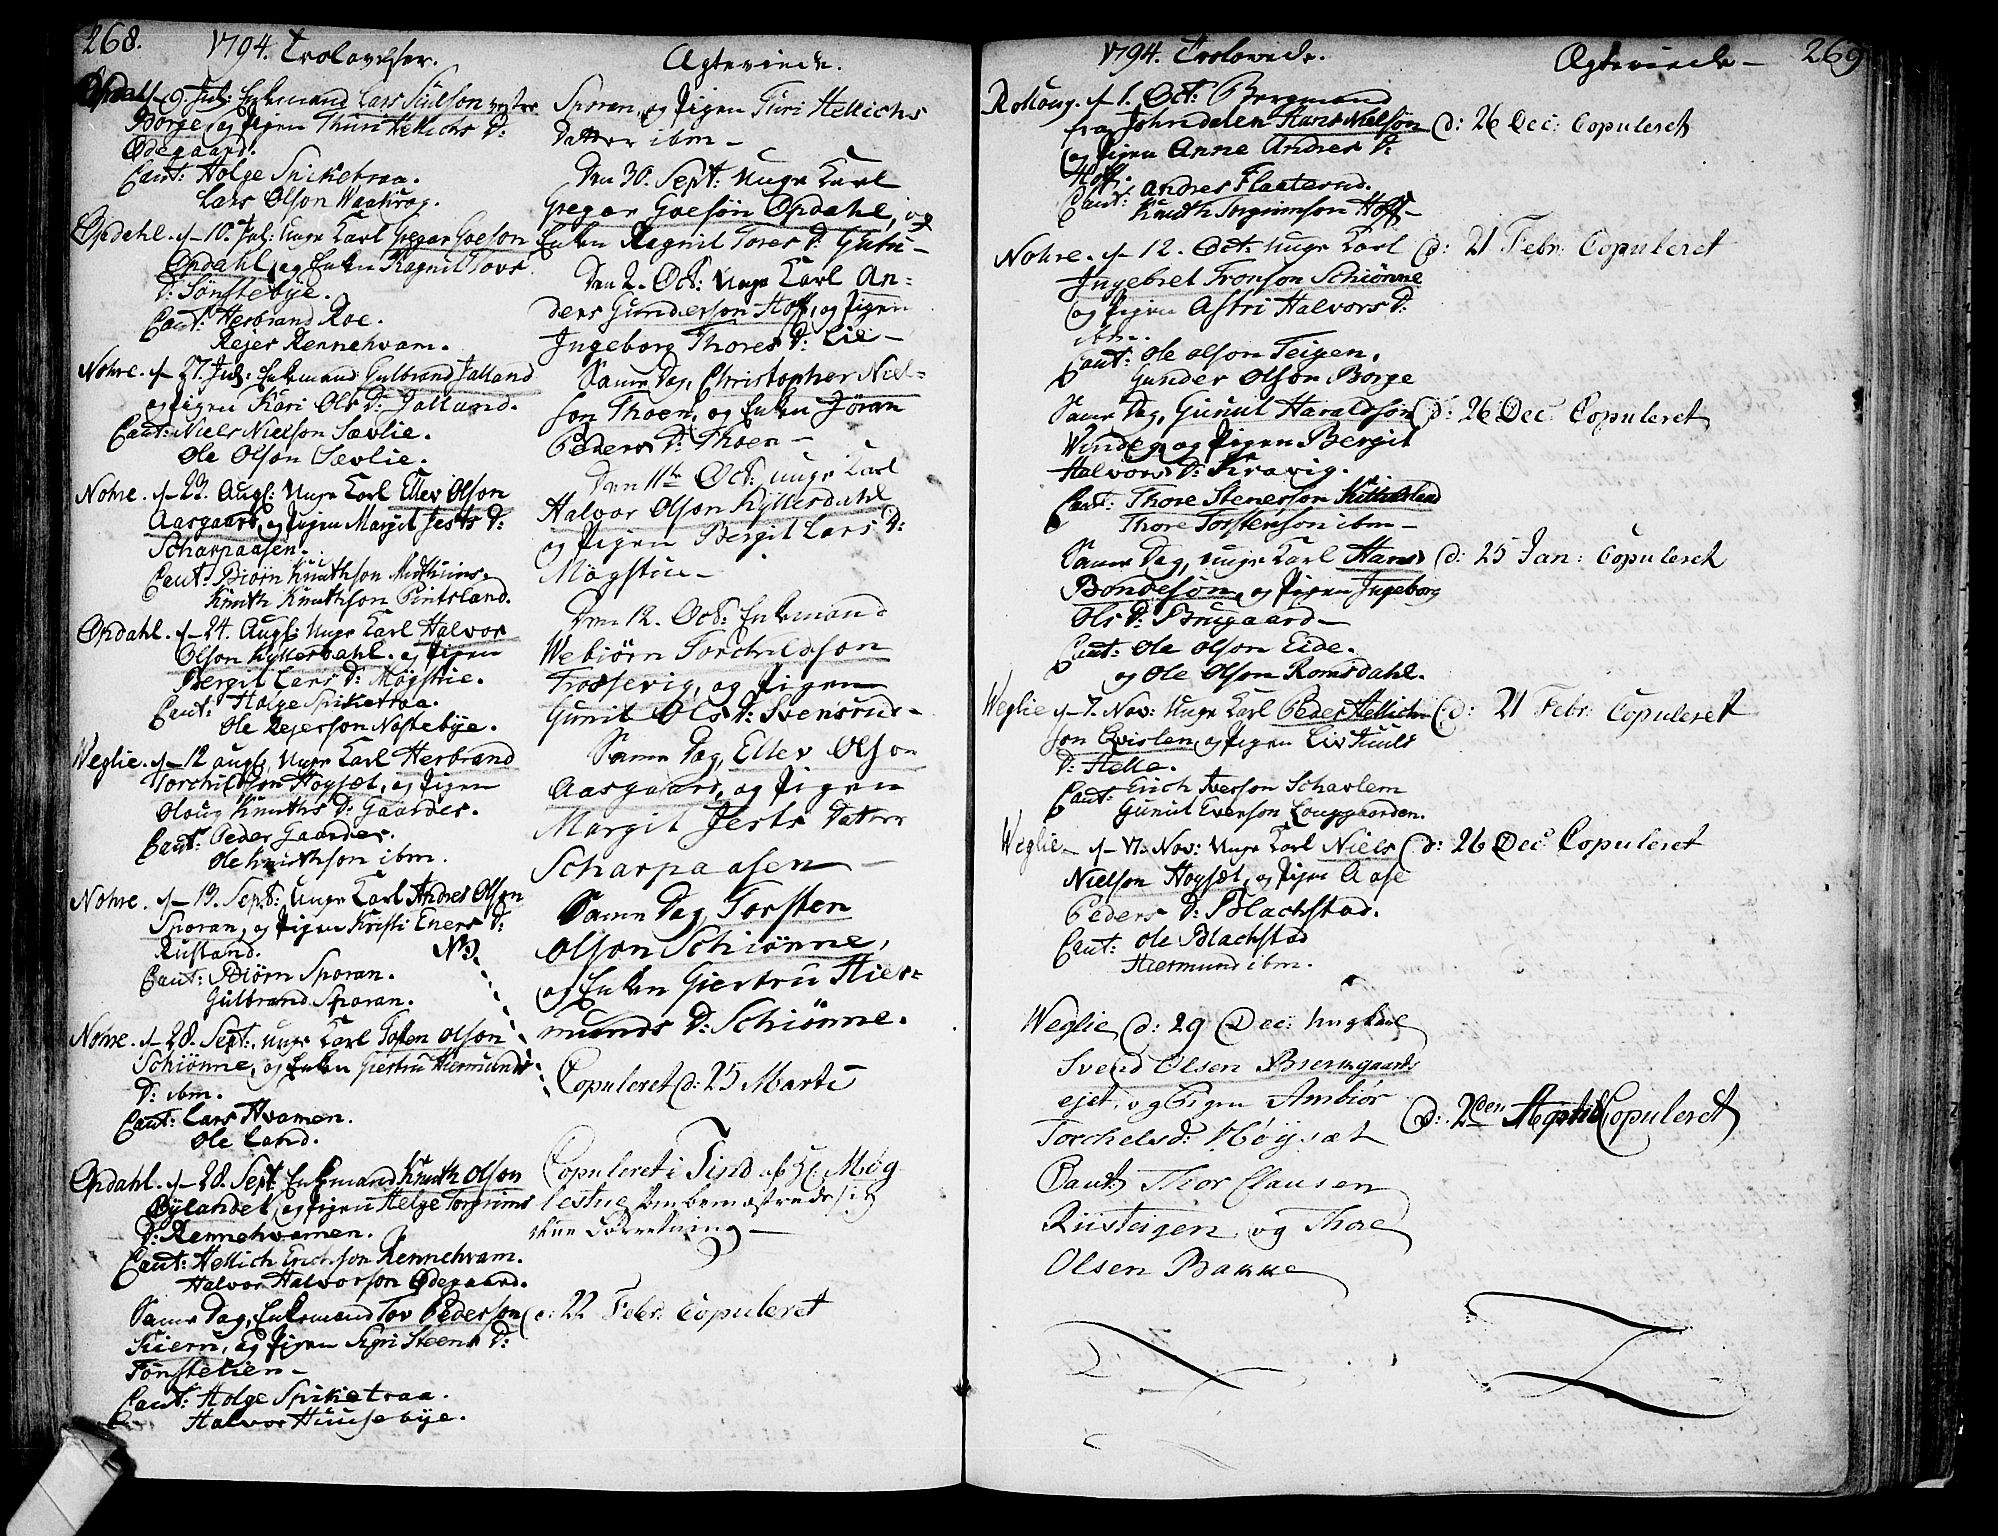 268.
1794. Trolovelser.
Opdal d. 9. Jul: Enkemand Lars Juulson
Borge, og Pigen Thuri Hellichs D:
Ødegaard.
Caut: Holge Spiketraa.
Lars Olson Waahrag.
Opdahl. d. 10. Jul: Unge Karl Gregar Goeson
Opdahl, og Enken Ragnil Tovs
D: Sønstebye.
Caut: Herbrand Roe.
Rejer Rennehvam.
Nohre. d. 27. Jul: Enkemand Gulbrand Jalland
og Pigen Kari Ols D: Jalland.
Caut: Niels Nielson Sævlie.
Ole Olson Sævlie.
Nohre. d. 23. Augl: Unge Karl Ellev Olson
Aasgaard, og Pigen Margit Jests D:
Scharpaasen.
Caut: Biørn Knuthson
Knuth Knuthson Pintsland.
Opdahl. d. 24. Augl: Unge Karl Halvor
Olson Kyttersdahl. og Pigen
Bergit Lars D: Møgstue.
Caut: Holge Spiketraa.
Ole Rejerson Nøstebye.
Weglie. d. 12 augl: Unge Karl Herbrand
Torchildson Høysæt, og Pigen
Oloug Knuths D: Gaarder.
Caut: Peder Gaarder.
Ole Knuthson ibm.
Nohre. d. 13. Sept: Unge Karl Andres Olson
Sporan, og Pigen Kristi Eners D:
Rustand. NB.
Caut: Biørn Sporan.
Gulbrand Sporan.
Nohre. d. 28. Sept: Unge Karl Tosten Olson
Schiønne, og Enken Giertru Hiermunds
D: ibm.
Caut: Lars Hvamen.
Ole Land.
Opdahl. d. 28. Sept: Enkemand Knuth Olson
Bylandet, og Pigen Helge Torgrims
D: Rennehvamen.
Caut: Hellich Erichson Rennehvam.
Halvor Halvorson Ødegaard.
Same Dag, Enkemand Tov Pederson
Kiern, og Pigen Sigri Steens D:
Tønstelien
Caut: Holge Spiketraa.
Halvor Huusebye.
Ægteviede.
Sporan, og Pigen Turi Hellichs
Datter ibm
Den 30. Sept: Unge Karl
Gregar Goesøn Opdahl, og
Enken Ragnil Tores D:
Den 2. Oct: Unge Karl An=
ders Gunderson Hoff, og Pigen
Ingeborg Thores D: Lie
Same Dag, Christopher Niel=
son Thoen, og Enken Jøran
Peders D: Thoen
Den 11te Oct: unge Karl
Halvor Olson Kyttersdahl
og Pigen Bergit Lars D:
Møgstue
Den 12. Oct: Enkemand
Webiørn Torchildson
Frossevig, og Pigen
Gunil Ols D: Svensrud
Same Dag, Ellev Olson
Aasgaard, og Pigen
Margit Jests Datter
Scharpaasen
Same Dag, Torsten
Olson Schiønne,
og Enken Giertru Hier=
munds D: Schiønne.
Copuleret d: 25 Marti
Copuleret i Tind af H: Møg
lestue som bemægtrede sig
denne Forretning
d: 22 Febr: Copuleret
1794. Trolovede.
Rollaug. d. 1. Oct: Bergmand
fra Johndalen Hans Nielson
og Pigen Anne Andres D:
Hoff.
Caut: Andres Flaaterud.
Knuth Torgrimson Hoff
Nohre. d. 12. Oct: Unge Karl
Ingebret Tronson Schiønne
og Pigen Astri Halvors D:
ibm.
Caut: Ole Olson Teigen.
Gunder Olson Borge
Same Dag, Gunul Haraldson
Vindeg og Pigen Bergit
Halvors D: Kravig.
Caut: Thore Stenerson Kittilsland
Thore Torstenson ibm
Same Dag, unge Karl Hans
Bondeson, og Pigen Ingeborg
Ols D: Brugaard
Caut: Ole Olson Eide.
og Ole Olson Romsdahl.
Weglie d. 7. Nov: Unge Karl Peder Hellich
son Qvislen, og Pigen Liv Juuls
D: Helle.
Caut: Erich Iverson Scharlem
Gunul Everson Louggaarden.
Weglie d. 17. Nov: Unge Karl Niels
Nielson Høysæt, og Pigen Aase
Peders D: Blachstad.
Caut: Ole Blachstad
Hiermund ibm.
Weglie d: 29 Dec: Ungkarl
Svend Olsen Bierngaards
ejet, og Pigen Ambiør
Torchelsd: Høysæt
Caut: Thor Clausen
Riisteigen og Thore
Olsen Bakke
Ægteviede 269
d: 26 Dec: Copuleret
d: 21 Febr: Copuleret
d: 26 Dec: Copuleret
d: 25 Jan: Copuleret
d: 21 Febr: Copuleret
d: 26 Dec: Copuleret
d: 2den April Copuleret